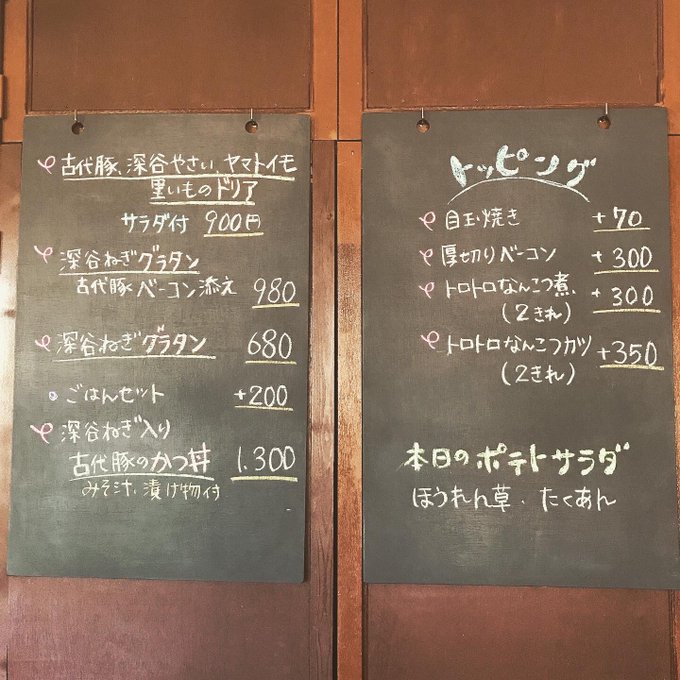 古代豚、深谷やさい、ヤマトイモ
里いものドリア
サラダ付 900円
深谷ねぎグラタン
古代豚ベーコン添え 980
深谷ねぎグラタン 680
ごはんセット +200
深谷ねぎ入り
古代豚のかつ丼 1.300
みそ汁、漬け物付
トッピング
目玉焼き +70
厚切りベーコン +300
トロトロなんこつ煮 +300
(2きれ)
トロトロなんこつカツ +350
(2きれ)
本日のポテトサラダ
ほうれん草・たくあん